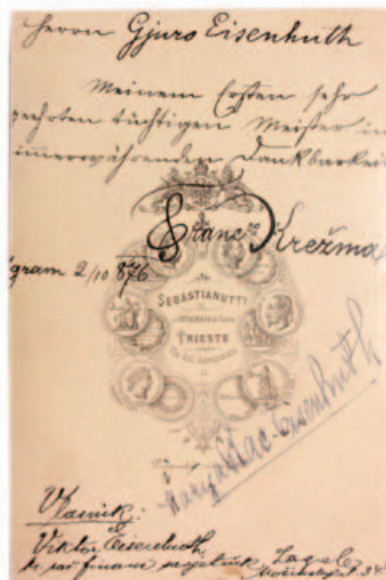 Herrn Gjuro Eisenhuth
Meinem Ersten sehr
geehrten tüchtigen Meister in
immerwährenden Dankbarkeit
Franc Krežma
gram 2/10 876
SEBASTIANUTTI
TRIESTE
Eisenhuth
Vlasnik:
Viktor Eisenhuth
kr. financ. savjetnik Zagreb